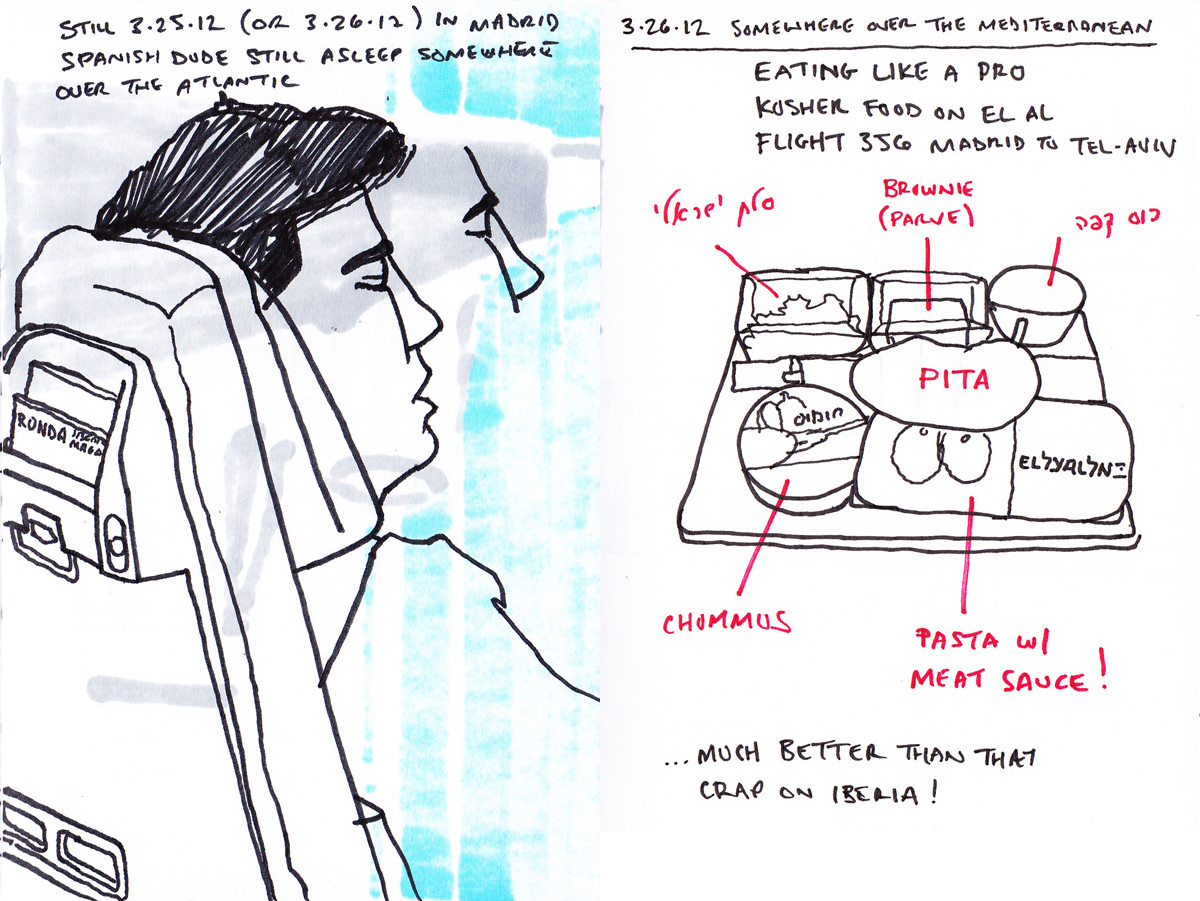 STILL 3.25.12 (OR 3.26.12) IN MADRID
SPANISH DUDE STILL ASLEEP SOMEWHERE
OVER THE ATLANTIC
RONDA
3.26.12 SOMEWHERE OVER THE MEDITERRANEAN
EATING LIKE A PRO
KOSHER FOOD ON EL AL
FLIGHT 356 MADRID TO TEL-AVIV
סלט ישראלי
BROWNIE
(PARVE)
כוס קפה
PITA
חומוס
EL אל על AL
CHOMMUS
PASTA W/
MEAT SAUCE!
...MUCH BETTER THAN THAT
CRAP ON IBERIA!